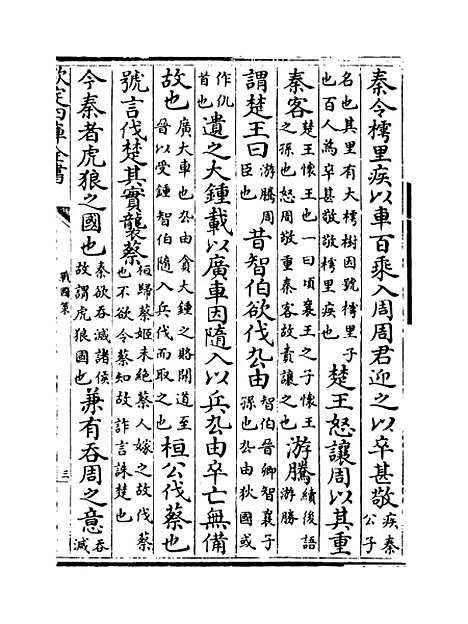 秦令樗里疾以車百乘入周周君迎之以卒甚敬疾秦公子
名也其里有大樗樹因號樗里子也百人為卒甚敬敬樗里疾也楚王怒讓周以其重
秦客楚王懷王也一曰頃襄王之子懷王之孫也怒周敬重秦客故責讓之也游騰續後語游勝
謂楚王曰游騰周臣也昔智伯欲伐厹由智伯晉卿智襄子孫也厹由狄國或
作仇首也遺之大鍾載以廣車因隨入以兵厹由卒亡無備
故也廣大車也厹由貪大鍾之賂開道至晉以受鍾智伯隨入兵伐而取之也桓公伐蔡也
號言伐楚其實襲蔡桓歸蔡姬未絕蔡人嫁之故伐蔡也不欲令蔡知故詐言誅楚也
今秦者虎狼之國也秦欲吞滅諸侯故謂虎狼國也兼有吞周之意吞滅
欽定四庫全書
戰國策
三